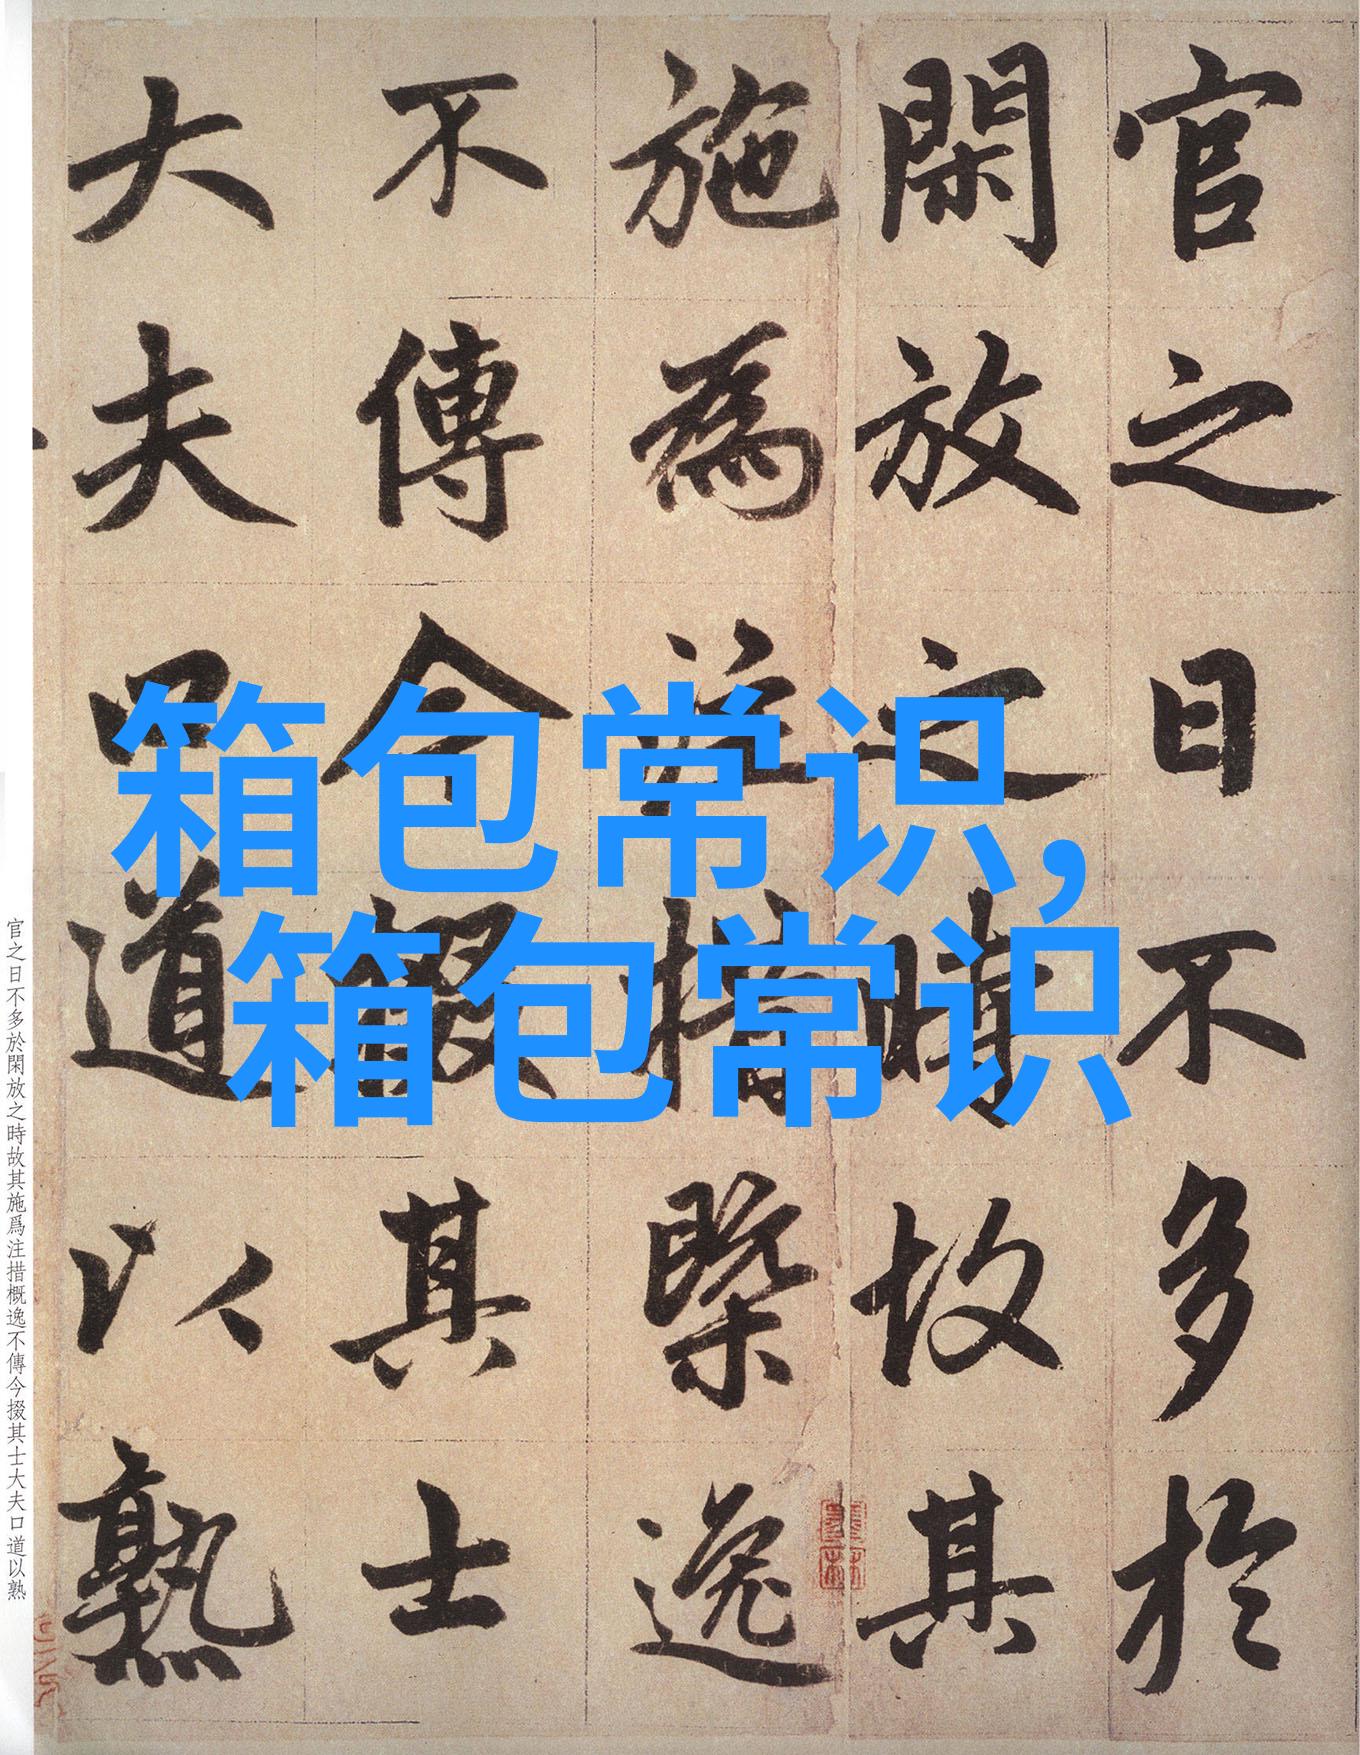 官之日不多於
閑放之時故其
施為注措槩逸
不傳今掇其士
大夫口道以熟
箱包常识,
箱包常识
官之日不多於閑放之時故其施爲注措概逸不傳今掇其士大夫口道以熟